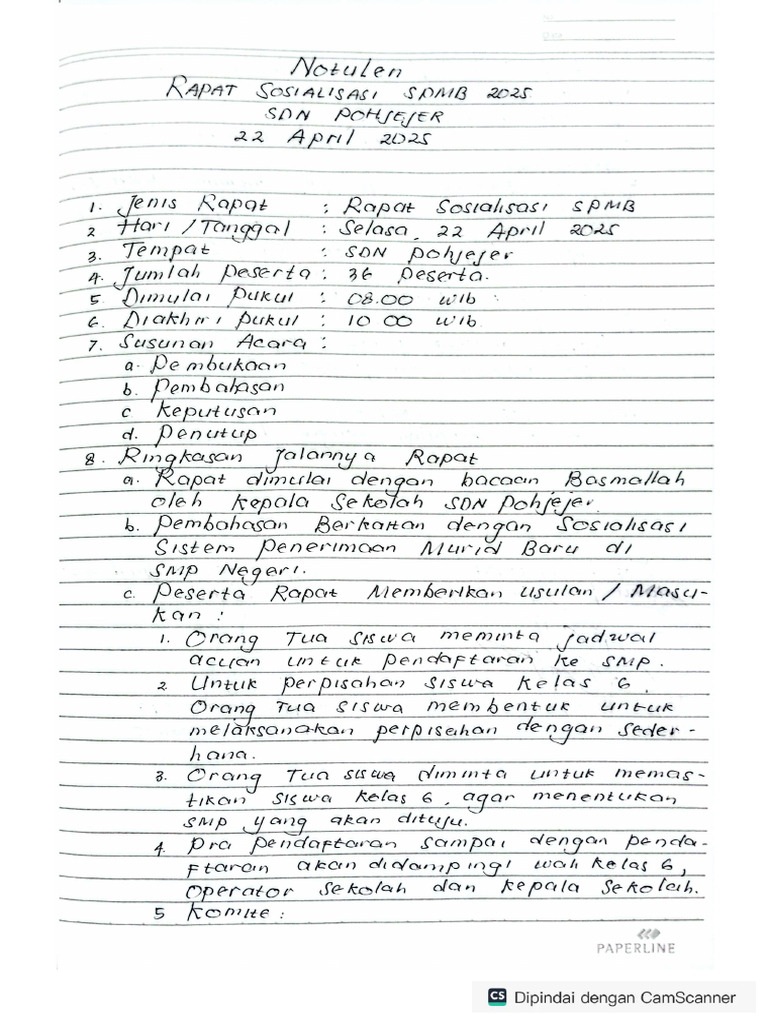 No.
Date
Notulen
RAPAT SOSIALISASI SPMB 2025
SDN POHJEJER
22 April 2025
1. Jenis Rapat : Rapat Sosialisasi SPMB
2 Hari / Tanggal : Selasa, 22 April 2025
3. Tempat : SDN Pohjejer
4. Jumlah Peserta : 36 Peserta.
5 Dimulai Pukul : 08.00 wib
6. Diakhiri Pukul : 10 00 wib
7. Susunan Acara :
a. Pembukaan
b. Pembahasan
c Keputusan
d. Penutup
8. Ringkasan Jalannya Rapat
a. Rapat dimulai dengan bacaan Basmallah
oleh Kepala Sekolah SDN Pohjejer.
b. Pembahasan Berkaitan dengan Sosialisasi
Sistem Penerimaan Murid Baru di
SMP Negeri.
c. Peserta Rapat Memberikan Usulan / Masu-
kan :
1. Orang Tua siswa meminta jadwal
acuan untuk Pendaftaran ke SMP.
2 Untuk perpisahan siswa kelas 6,
Orang Tua siswa membentuk untuk
melaksanakan perpisahan dengan seder-
hana.
3. Orang Tua siswa diminta untuk memas-
tikan siswa kelas 6, agar menentukan
SMP yang akan dituju.
4. Pra Pendaftaran sampai dengan penda-
ftaran akan didampingi wali kelas 6,
Operator Sekolah dan Kepala Sekolah.
5 Komite :
PAPERLINE
CS Dipindai dengan CamScanner